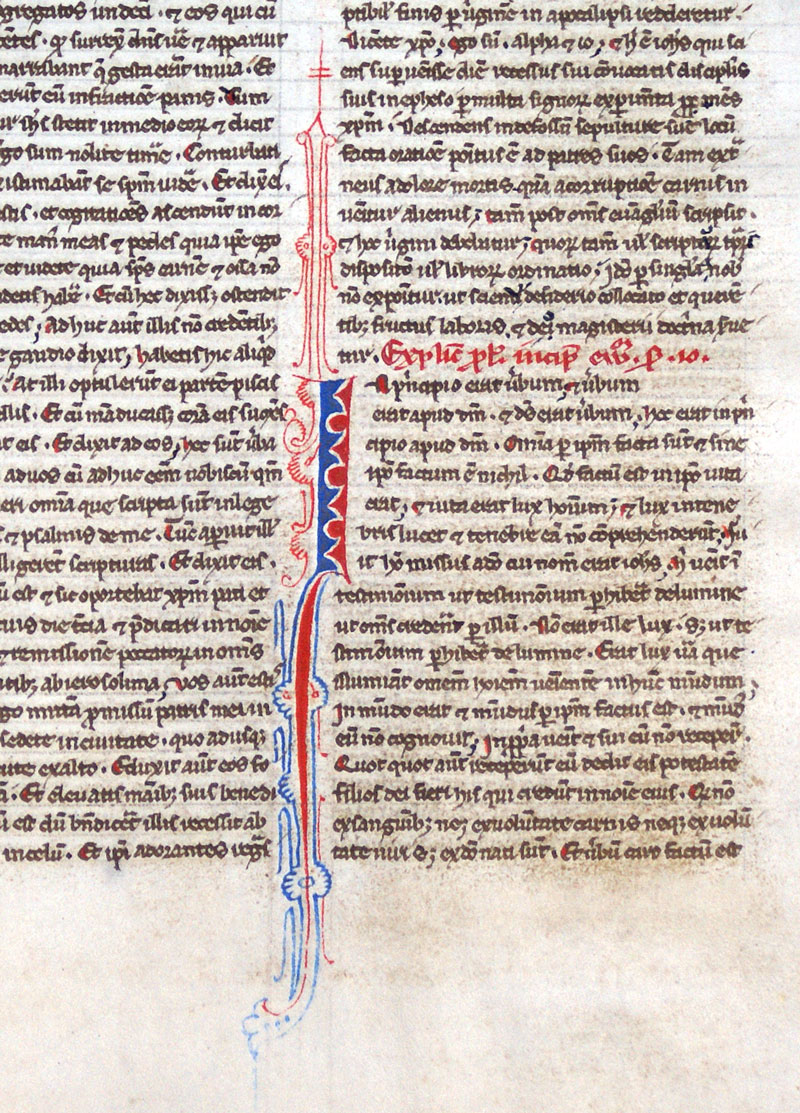 gregatos undeci · et eos qui cū
centes · qͥ surrexͭ dn̄s ūe et apparuit
narrabant q̄ gesta erāt in via · Et
erūt eū in fractiōe panis · Dum
ur ih̄s stetit in medio eoꝝ et dicit
go sum nolite timē · Conturbati
istimabāt se spm̄ vidē · Et dixͭ eī
estis · et cogitatiōes ascendūt in cor
te man̄ meas et pedes quia ip̄e ego
et videte quia sp̄s carnē et ossa nō
detis habē · Et cū hec dixissꝫ ostendit
edes ; ad huc aūt illis nō credētibꝫ
e gaudio dixit ; habetis hic aliqͥd
· At illi optulerūt ei partē piscis
ellis · Et cū māducassꝫ corā eis sumēs
it eis · Et dixit ad eos ; hec sūt ūba
ad uos cū ad huc eēm nobiscū qm̄
eri omīa que scripta sūt in lege
et psalmis de me · Tūc aperuit illͥ
lligerēt scripturas · Et dixit eis ·
ū est et sic oportebat xp̄m pati et
cuis die tᵉcia et p̄dicari in noīe
et remissionē peccatoꝝ in om̄s
tibꝫ ab ierosolima ; vos aūt estis
go mittā ꝓmissū patris mei in
sedete in civitate · quo ad usqꝫ
tute ex alto · Eduxit aūt eos fo
ā · Et eleuatis manibꝫ suis benedi
ū est dū bn̄dicēt illis recessit ab
in celū · Et ipī adorantes regs̄i
ptibilͥ finis ꝑ ūginē in apocalipsi redderetur ·
dicēte xp̄o ; ego sū · alpha et ω ; et h̄ ē ioh̄s qui sci
ens suꝑuēisse diē recessus sui cōuocatis discipl̄is
suis in epheso ꝑ multa signoꝝ exꝑimēta ꝓmēs
xp̄m ; descendens in defossū sepulture sue locū
facta oratiōe poītus ē ad patres suos · Tam ext̄
neus a dolore mortis · qͣm a corruptiōe carnis in
uēitur alienus ; tam̄ post om̄s euāgl̄iū scripsit ·
et hoc ūgini debebatur ; quoꝝ tam̄ ul̄ scriptoꝝ tp̄ris
dispositō ul̄ libroꝝ ordinatio ; idō ꝑ singl̄a nob̄
nō expōitur · ut sciendi desiderio collocato et querē
tibꝫ fructus laboris et deo magisterii doctͥna ſue
tur · Explic̄ ꝓl · incip̄ ew̄ · S · io ·
In pͥncipio erat ūbum ; et ūbum
erat apud dm̄ · et ds̄ erat ūbum ; hoc erat in pͥn
cipio apud dm̄ · Omīa ꝑ ip̄m facta sūt et sine
ip̄o factum ē nichil · Qd̄ factū est in ip̄o uita
erat ; et uita erat lux hoīnum ; et lux in tene
bris lucet et tenebre eā nō cōprehenderūt · Fu
it hō missus a dō cui nom̄ erat ioh̄s · h̄ uēit ī
testimonium ut testimōium ꝑhibēt de lumine
ut om̄s crederēt ꝑ illū · Nō erat ille lux · Sꝫ ut te
stimōium ꝑhibēt de lumine · Erat lux ūa que
illuminat omēm hoīem ueientē in hūc mūdum ;
In mūdo erat et mūdus ꝑ ip̄m factus est · et mūdꝰ
eū nō cognouit ; In ꝓpͥa uenit et sui eū nō receper̄t ·
Quot quot aūt receperūt eū dedit eis potestatē
filios dei fieri his qui credūt in noīe eius · Qͥ nō
ex sanguībꝫ neqꝫ ex uolūtate carnis neqꝫ ex uolū
tate uiri sꝫ ex dō nati sūt · Et ūbū caro factū est